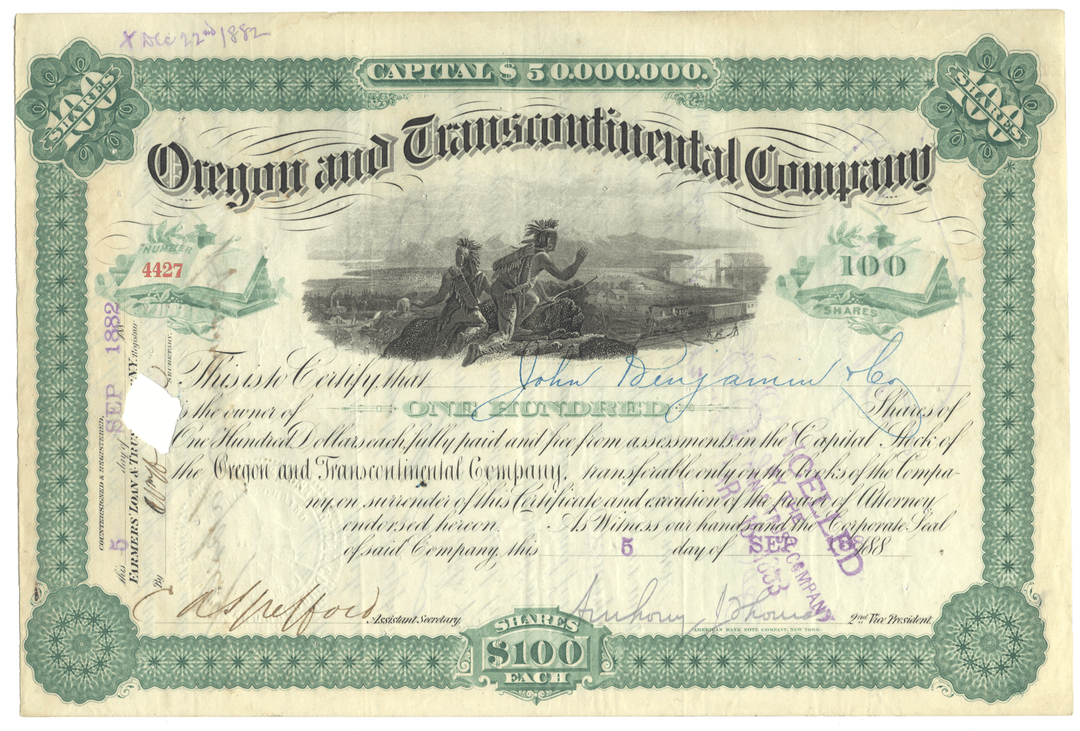 x Dec 22nd 1882
CAPITAL $ 50.000.000.
100 SHARES
100 SHARES
Oregon and Transcontinental Company
NUMBER
4427
100
SHARES
This is to Certify that John Benjamin & Co
is the owner of ONE HUNDRED Shares of
One Hundred Dollars each, fully paid and free from assessments in the Capital Stock of
the Oregon and Transcontinental Company, transferable only on the books of the Compa-
ny on surrender of this Certificate and execution of the power of Attorney
endorsed hereon. As Witness our hands and the Corporate Seal
of said Company, this 5 day of SEP 188
COUNTERSIGNED & REGISTERED,
this 5 day of SEP 1882
FARMERS' LOAN & TRU NY. Registrar
By
SECRETARY.
CELLED
COMPANY
Assistant Secretary.
Anthony J Thomas 2nd Vice President.
AMERICAN BANK NOTE COMPANY, NEW YORK.
SHARES
$100
EACH